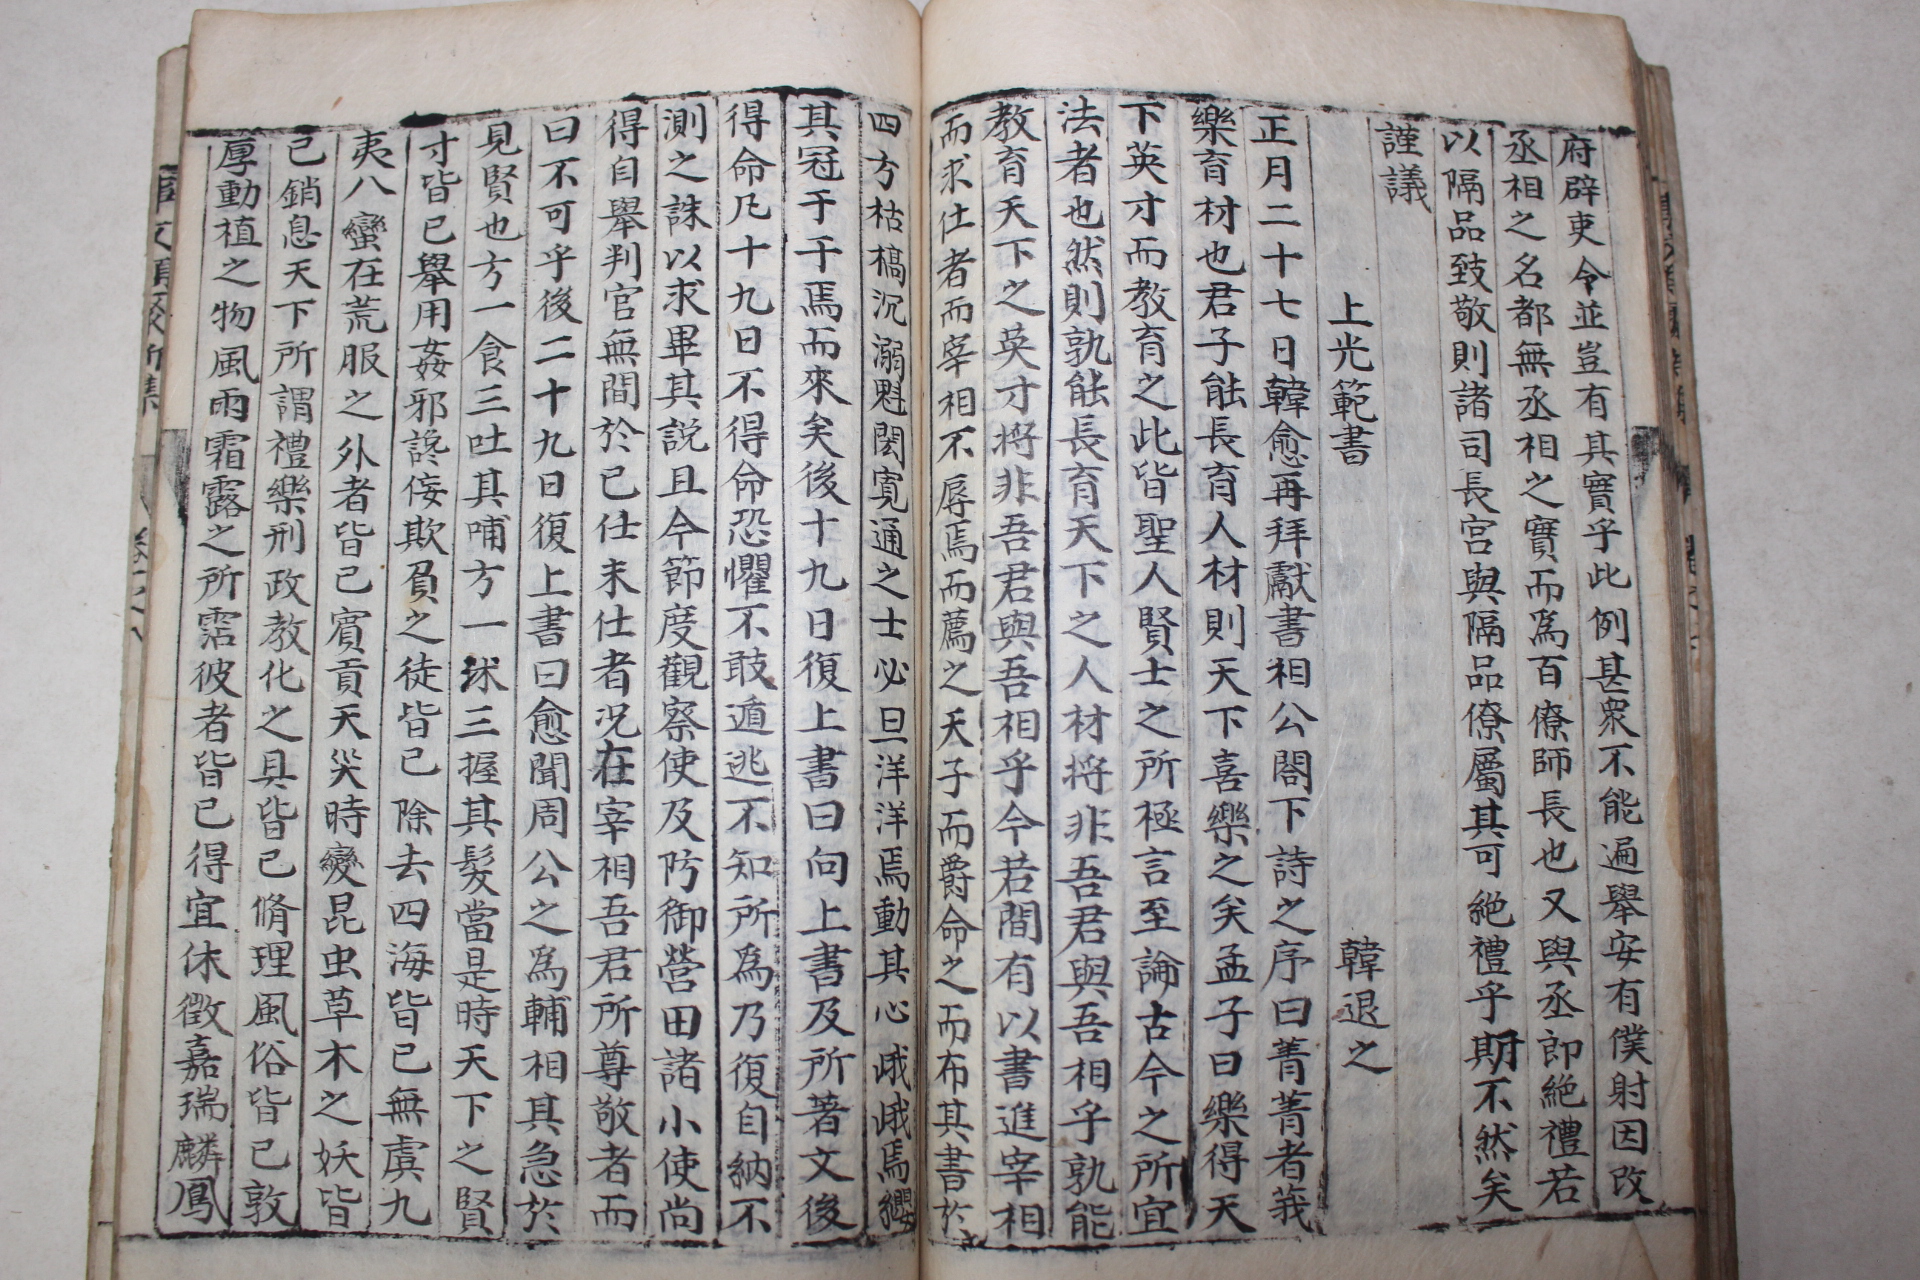 府辟吏令並豈有其實乎此例甚衆不能遍舉安有僕射因改
丞相之名都無丞相之實而爲百僚師長也又與丞郎絶禮若
以隔品致敬則諸司長官與隔品僚屬其可絶禮乎期不然矣
謹議
上光範書 韓退之
正月二十七日韓愈再拜獻書相公閤下詩之序曰菁菁者莪
樂育材也君子能長育人材則天下喜樂之矣孟子曰樂得天
下英才而教育之此皆聖人賢士之所極言至論古今之所宜
法者也然則孰能長育天下之人材將非吾君與吾相乎孰能
教育天下之英才將非吾君與吾相乎今若閒有以書進宰相
而求仕者而宰相不辱焉而薦之天子而爵命之而布其書於
四方枯槁沉溺魁閎寛通之士必且洋洋焉動其心峨峨焉纓
其冠于于焉而來矣後十九日復上書曰向上書及所著文後
得命凡十九日不得命恐懼不敢遁逃不知所爲乃復自納不
測之誅以求畢其説且今節度觀察使及防御營田諸小使尚
得自舉判官無間於已仕未仕者况在宰相吾君所尊敬者而
曰不可乎後二十九日復上書曰愈聞周公之爲輔相其急於
見賢也方一食三吐其哺方一沐三握其髮當是時天下之賢
才皆已舉用姦邪讒侫欺負之徒皆已除去四海皆已無虞九
夷八蠻在荒服之外者皆已賓貢天灾時變昆虫草木之妖皆
已銷息天下所謂禮樂刑政教化之具皆已脩理風俗皆已敦
厚動植之物風雨霜露之所霑彼者皆已得宜休徴嘉瑞麟鳳